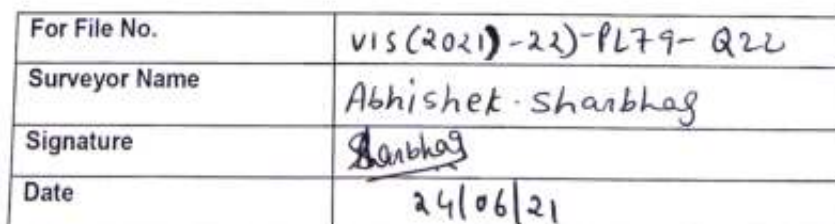 For File No. VIS(2021)-22)-PL79-Q22
Surveyor Name Abhishek. Shanbhag
Signature Shanbhag
Date 24/06/21